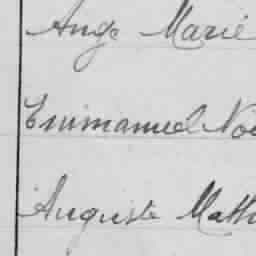 Ange Marie
Emmanuel Noë
Auguste Math